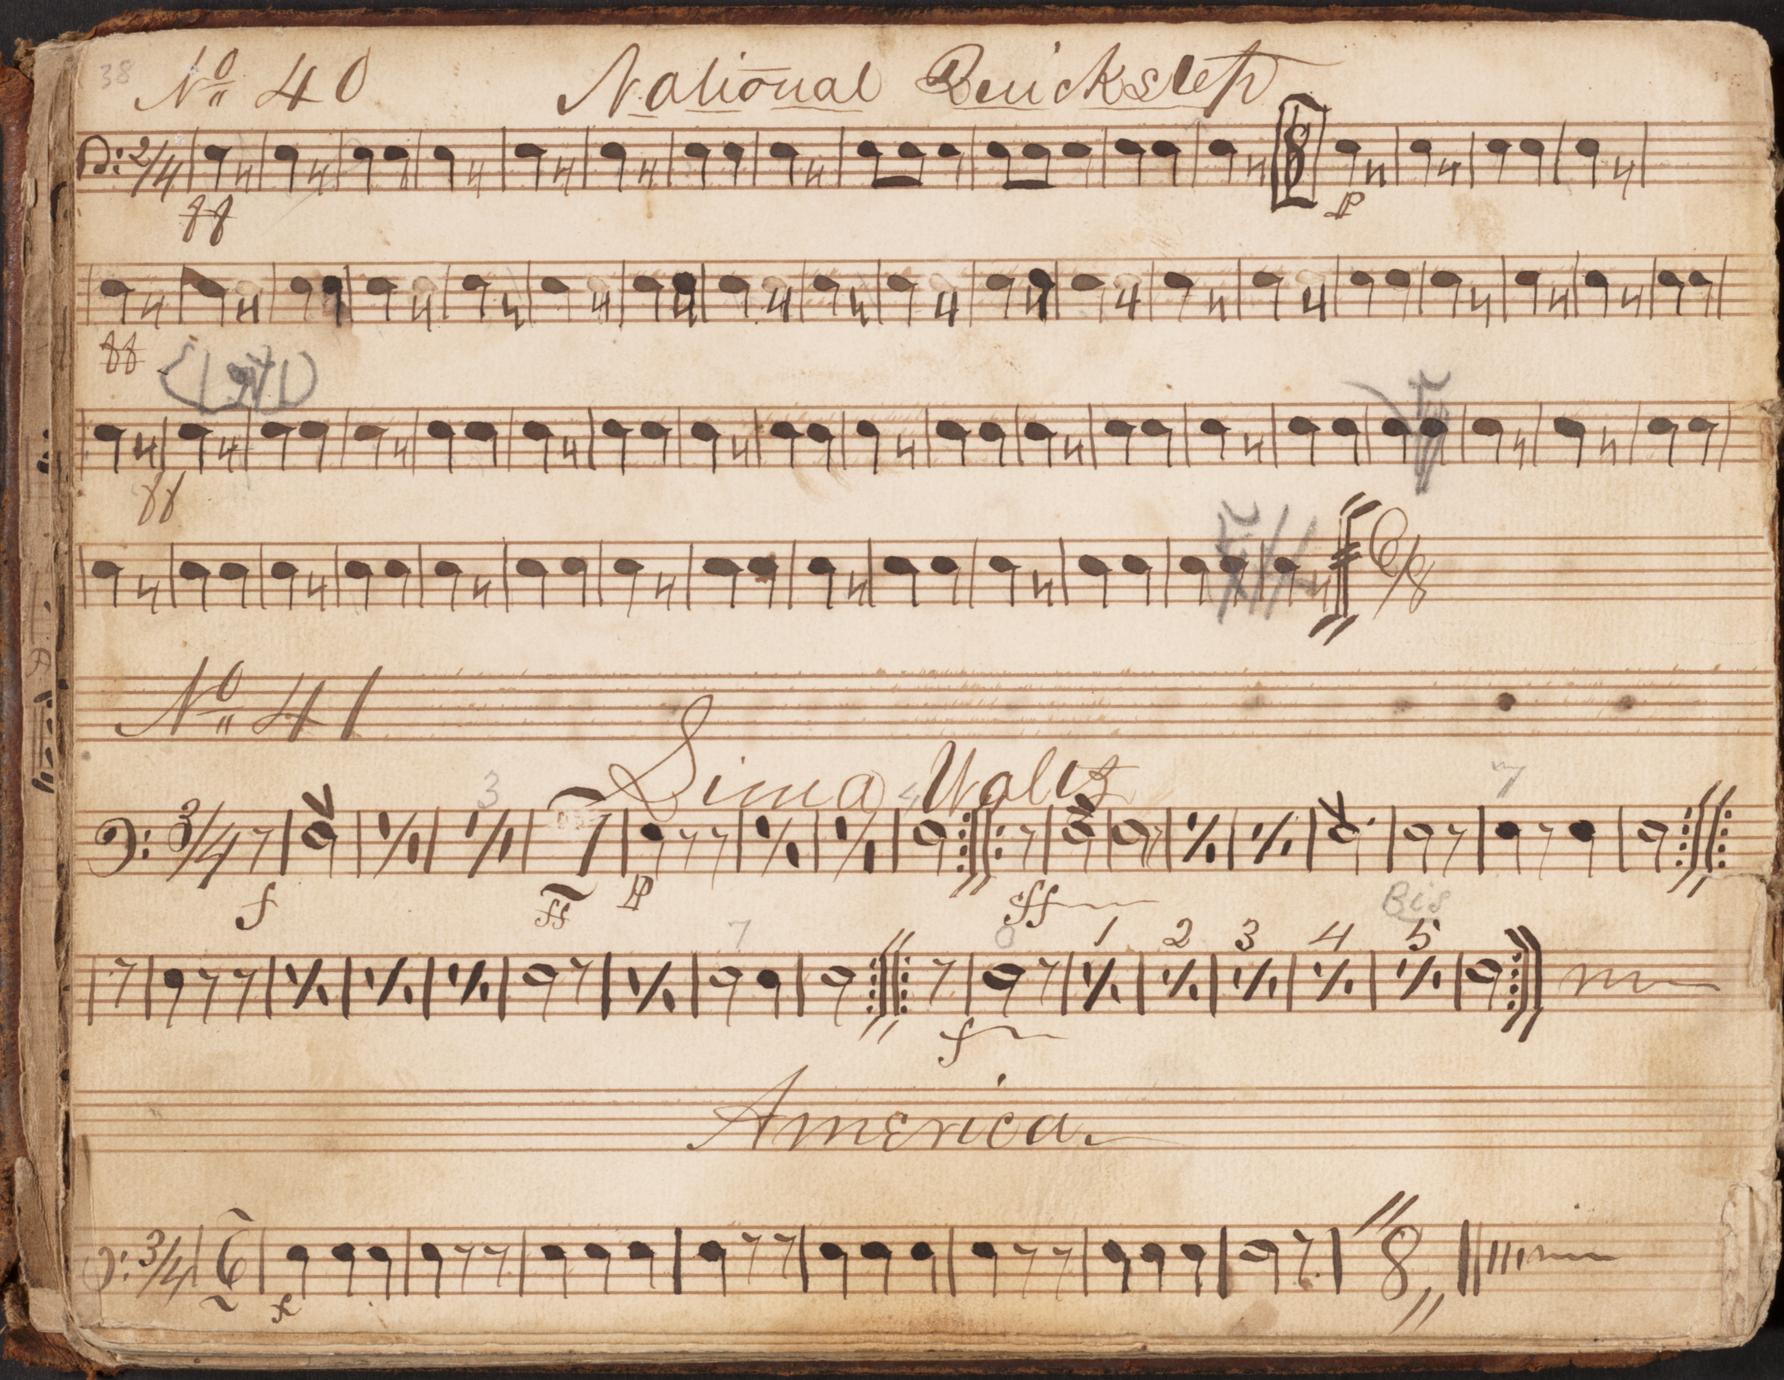 38 No 40 National Quickstep
2/4
8
ff P
ff
ff
6/8
No 41
Lima Waltz
3 4 7
3/4
f ff P ff Bis
7 8 1 2 3 4 5
f
America
3/4 6 8